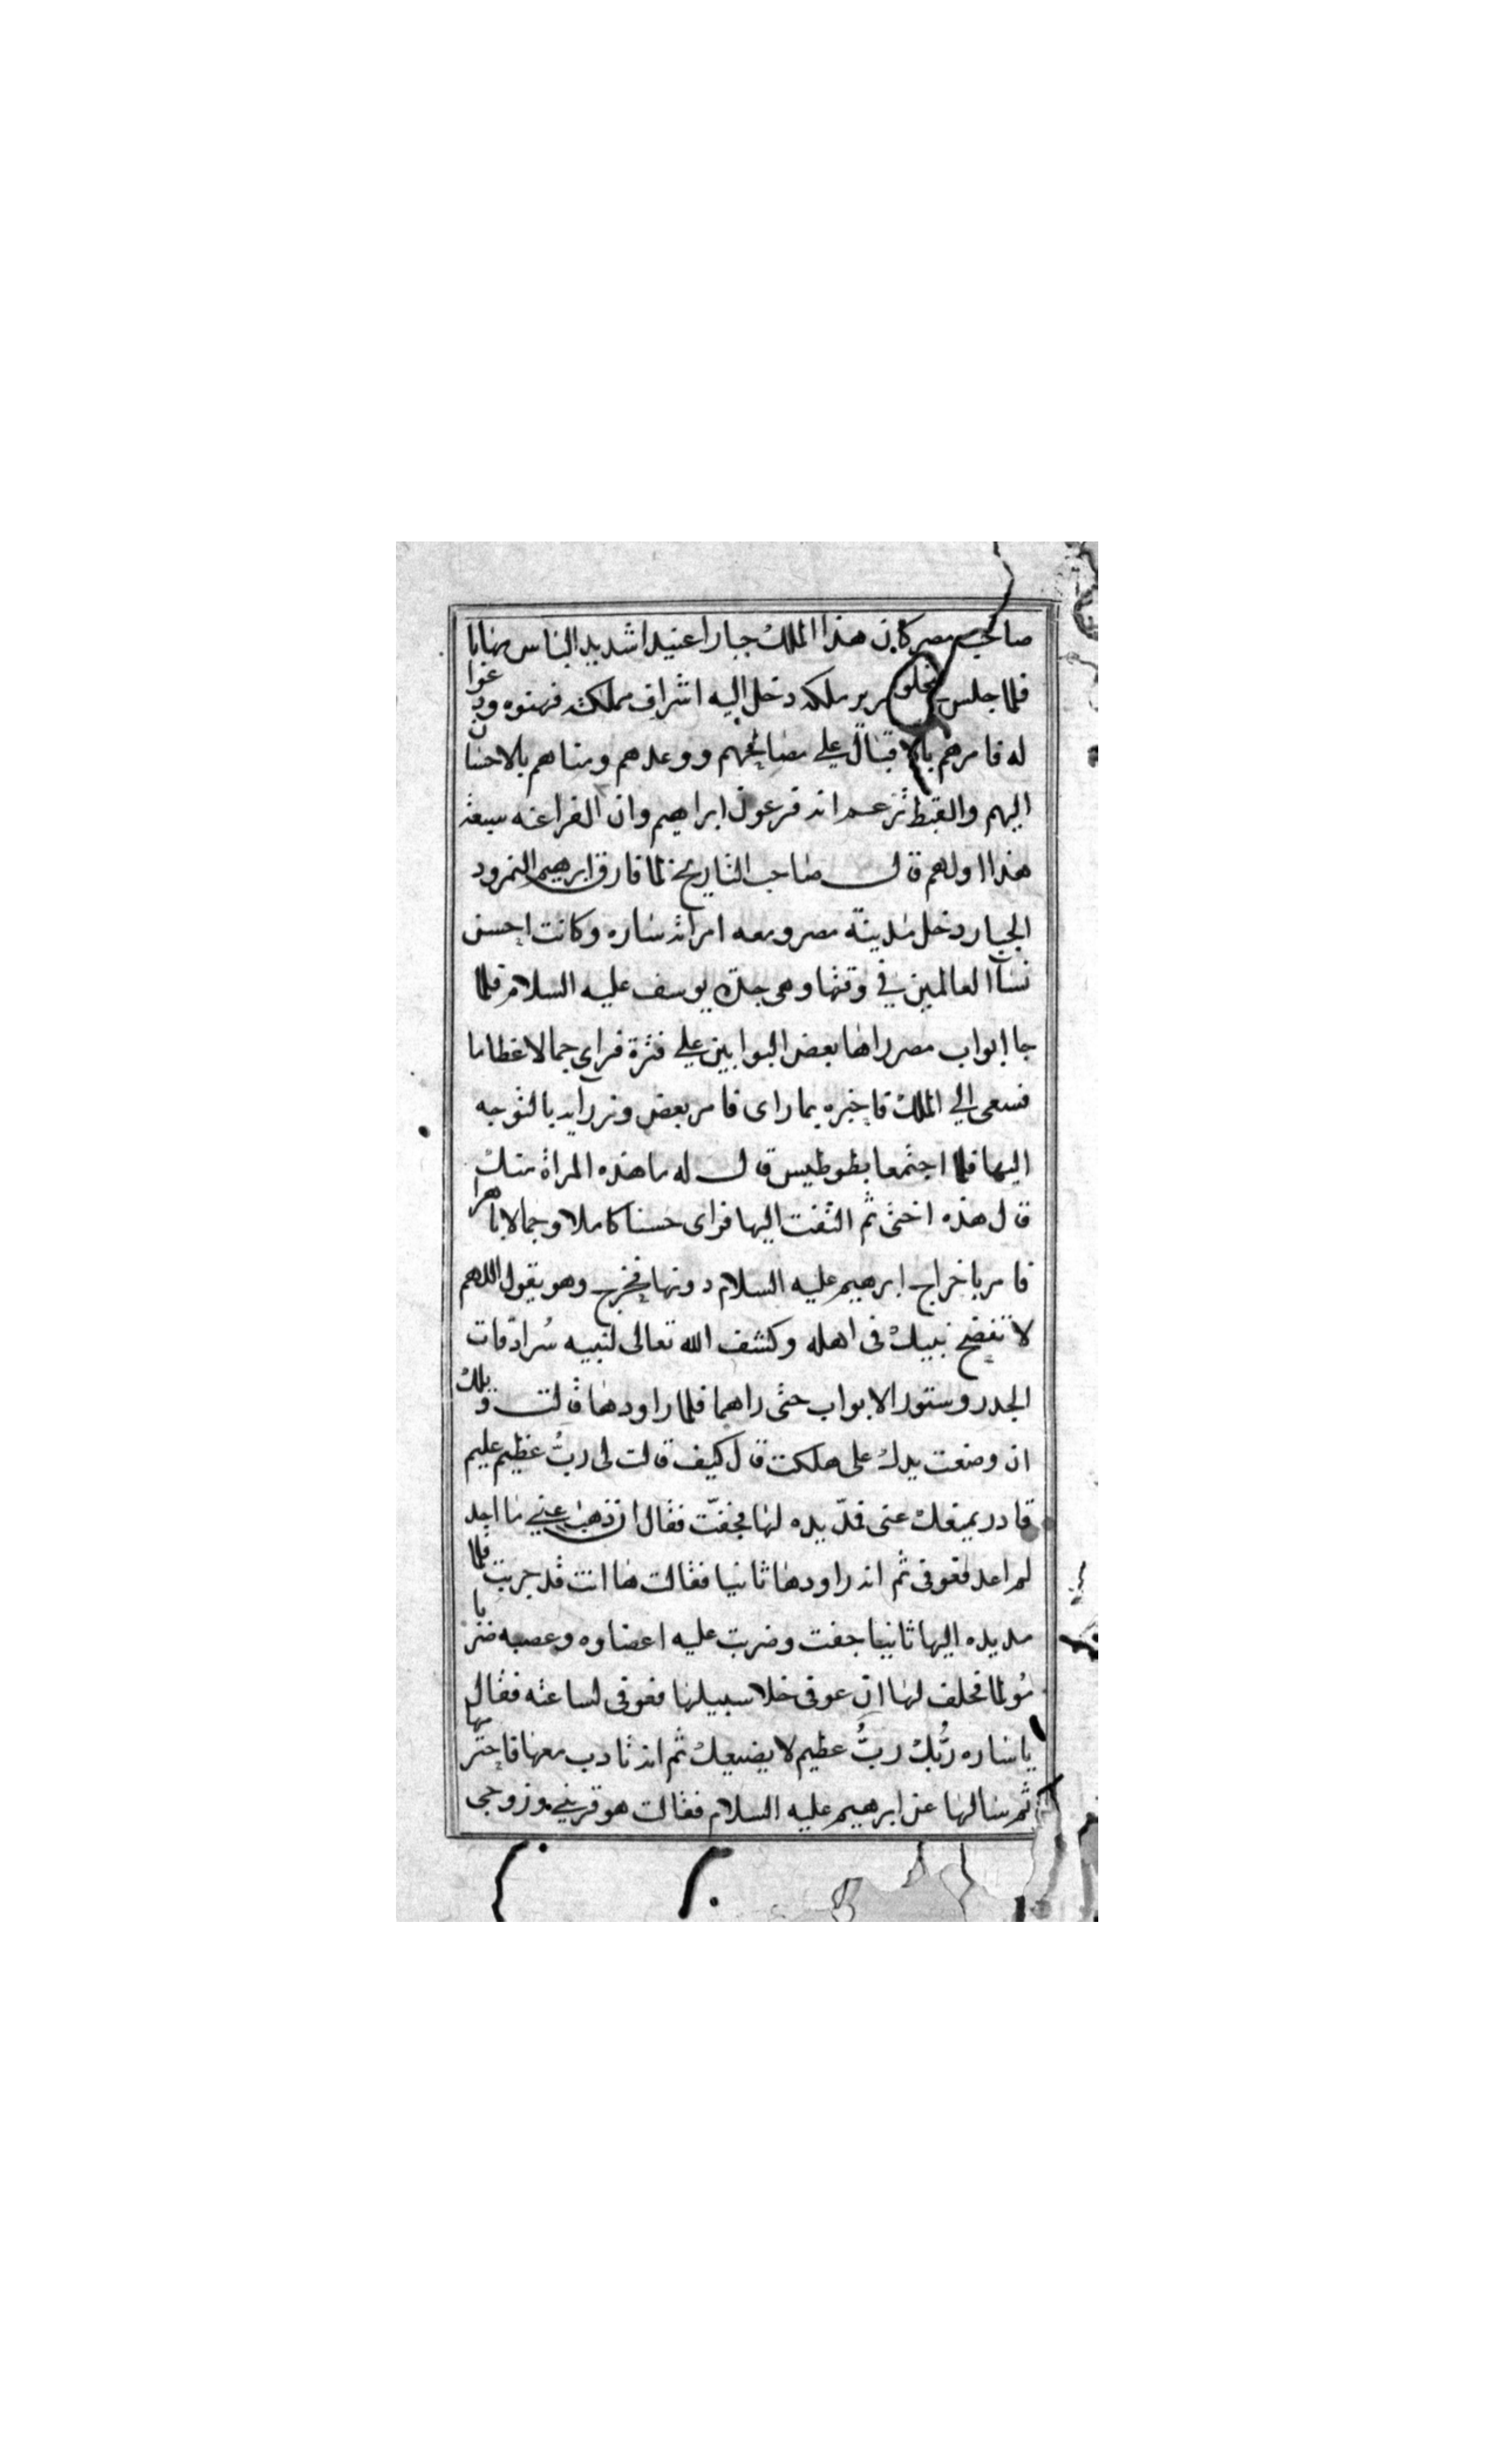 صاحب مصر كان هذا الملك جبارا عنيدا شديد الباس مهابا
فلما جلس على سرير ملكه دخل اليه اشراف مملكته فهنوه ودعوا
له فامرهم بالاقبال علي مصالحهم ووعدهم ومناهم بالاحسان
اليهم والقبط تزعم انه فرعون ابراهيم وان الفراعنه سبعة
هذا اولهم قال صاحب التاريخ لما فارق ابرهيم النمرود
الجبار دخل مدينة مصر ومعه امراته ساره وكانت احسن
نسآ العالمين في وقتها وهي جدة يوسف عليه السلام فلما
جا ابواب مصر راها بعض البوابين علي فترة فراي جمالا
فسعى الي الملك فاخبره بما راى فامر بعض وزرآيه بالتوجه
اليها فلما اجتمعا بطوطيس قال له ما هذه المراة منك
قال هذه اختى ثم التفت اليها فراى حسنا كاملا وجمالا باهرا
فامر باخراج ابرهيم عليه السلام دونها فخرج وهو يقول اللهم
لا تفضح نبيك فى اهله وكشف الله تعالى لنبيه سُرادقات
الجدر وستور الابواب حتى راهما فلما راودها قالت ويلك
ان وضعت يدك على هلكت قال كيف قالت لى ربٌ عظيم عليم
قادر يمنعك عنى فمدّ يده لها فجفّت فقال ان ذهب عني ما اجد
لم اعد فعوفى ثم انه راودها ثانيا فقالت ها انت قد جربت فلما
مد يده اليها ثانيا جفت وضربت عليه اعضاوه وعصبه ضربا
مُولما فحلف لها ان عوفى خلا سبيلها فعوفى لساعته فقال
يا ساره ربُّك ربٌّ عظيم لا يضيعك ثم انه تادب معها فاحترمها
ثم سالها عن ابرهيم عليه السلام فقالت هو قريني وزوجى